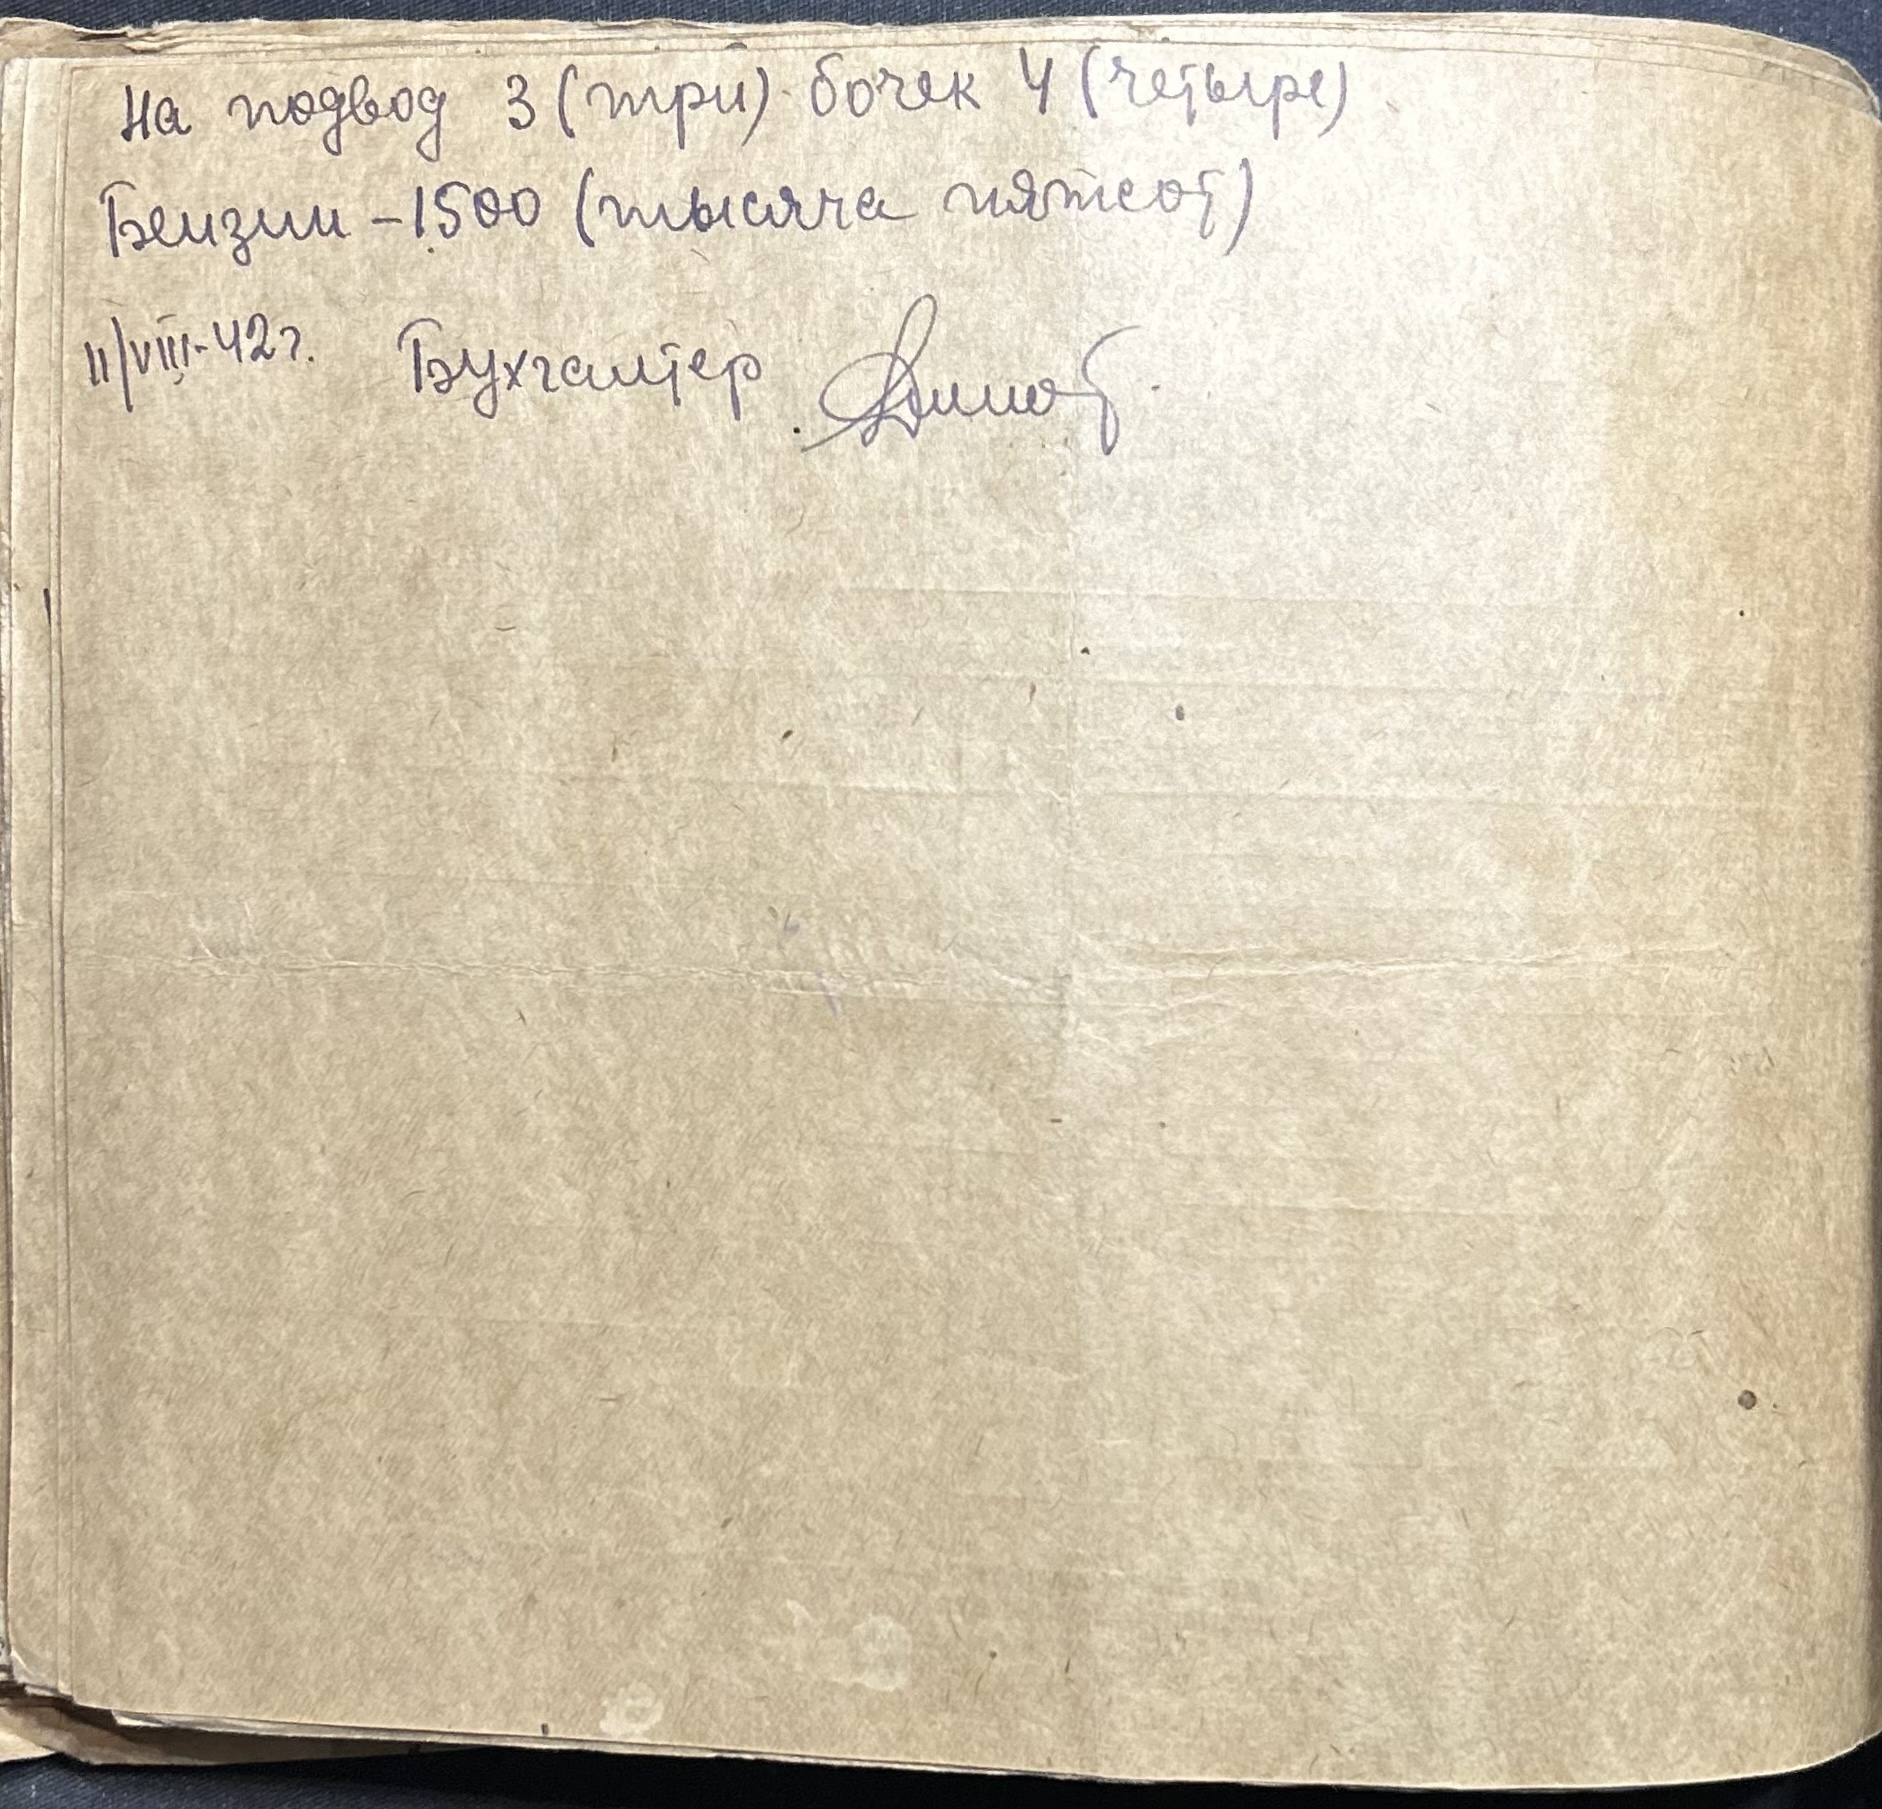 На подвод 3 (три) бочек 4 (четыре)
Бензин – 1500 (тысяча пятсот)
11/VIII-42 г. Бухгалтер